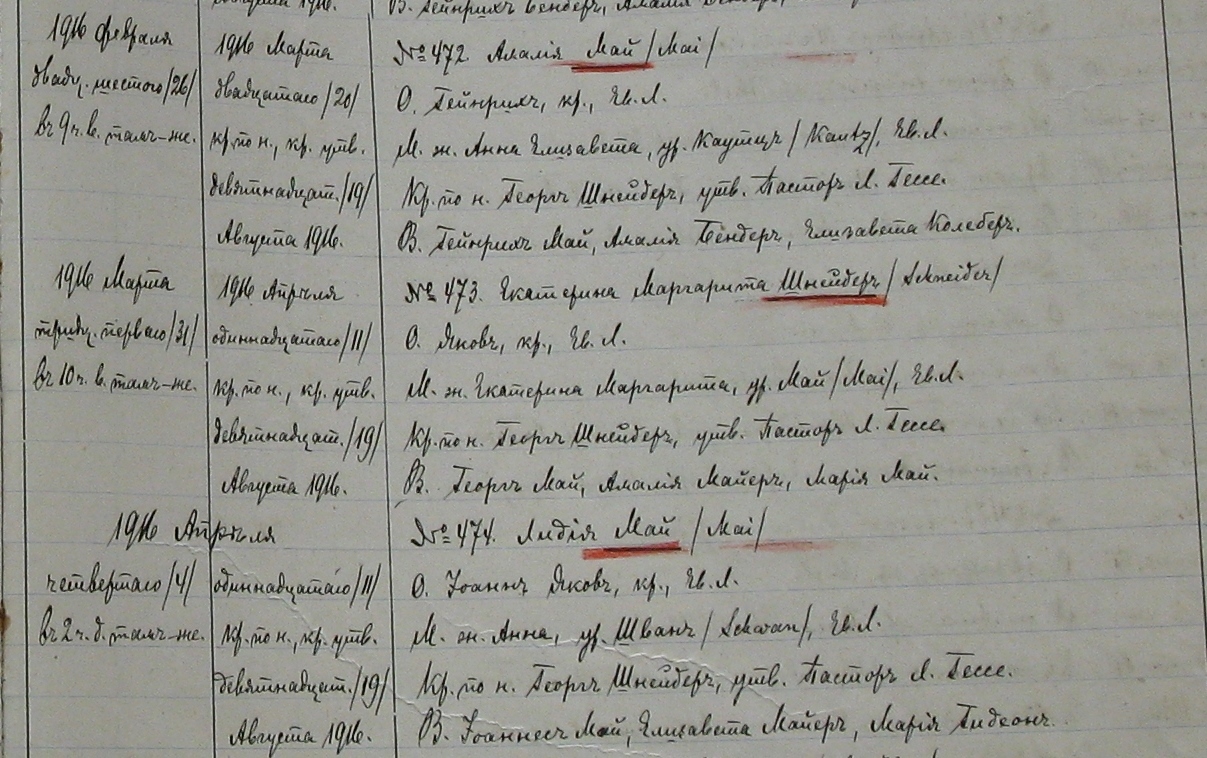 В. Гейнрихъ Бендеръ, Амалія
1916 февраля 1916 Марта № 472 Амалія Май /Mai/
двадц. шестого /26/ двадцатаго /20/ О. Гейнрихъ, кр., Ев. Л.
въ 9 ч. в. тамъ-же. кр. по н., кр. утв. М. ж. Анна Елизавета, ур. Каутцъ /Kautz/, Ев. Л.
девятнадцат. /19/ Кр. по н. Георгъ Шнейдеръ, утв. Пасторъ Л. Гессе.
Августа 1916. В. Гейнрихъ Май, Амалія Бендеръ, Елизавета Колеберъ.
1916 Марта 1916 Апрѣля № 473. Екатерина Маргарита Шнейдеръ /Schneider/
тридц. перваго /31/ одиннадцатаго /11/ О. Яковъ, кр., Ев. Л.
въ 10 ч. в. тамъ-же. кр. по н., кр. утв. М. ж. Екатерина Маргарита, ур. Май /Mai/, Ев. Л.
девятнадцат. /19/ Кр. по н. Георгъ Шнейдеръ, утв. Пасторъ Л. Гессе.
Августа 1916. В. Георгъ Май, Амалія Майеръ, Марія Май.
1916 Апрѣля № 474. Лидія Май /Mai/
четвертаго /4/ одиннадцатаго /11/ О. Іоаннъ Яковъ, кр., Ев. Л.
въ 2 ч. д. тамъ-же. кр. по н., кр. утв. М. ж. Анна, ур. Шванъ /Schwan/, Ев. Л.
девятнадцат. /19/ Кр. по н. Георгъ Шнейдеръ, утв. Пасторъ Л. Гессе.
Августа 1916. В. Іоаннесъ Май, Елизавета Майеръ, Марія Гидеонъ.